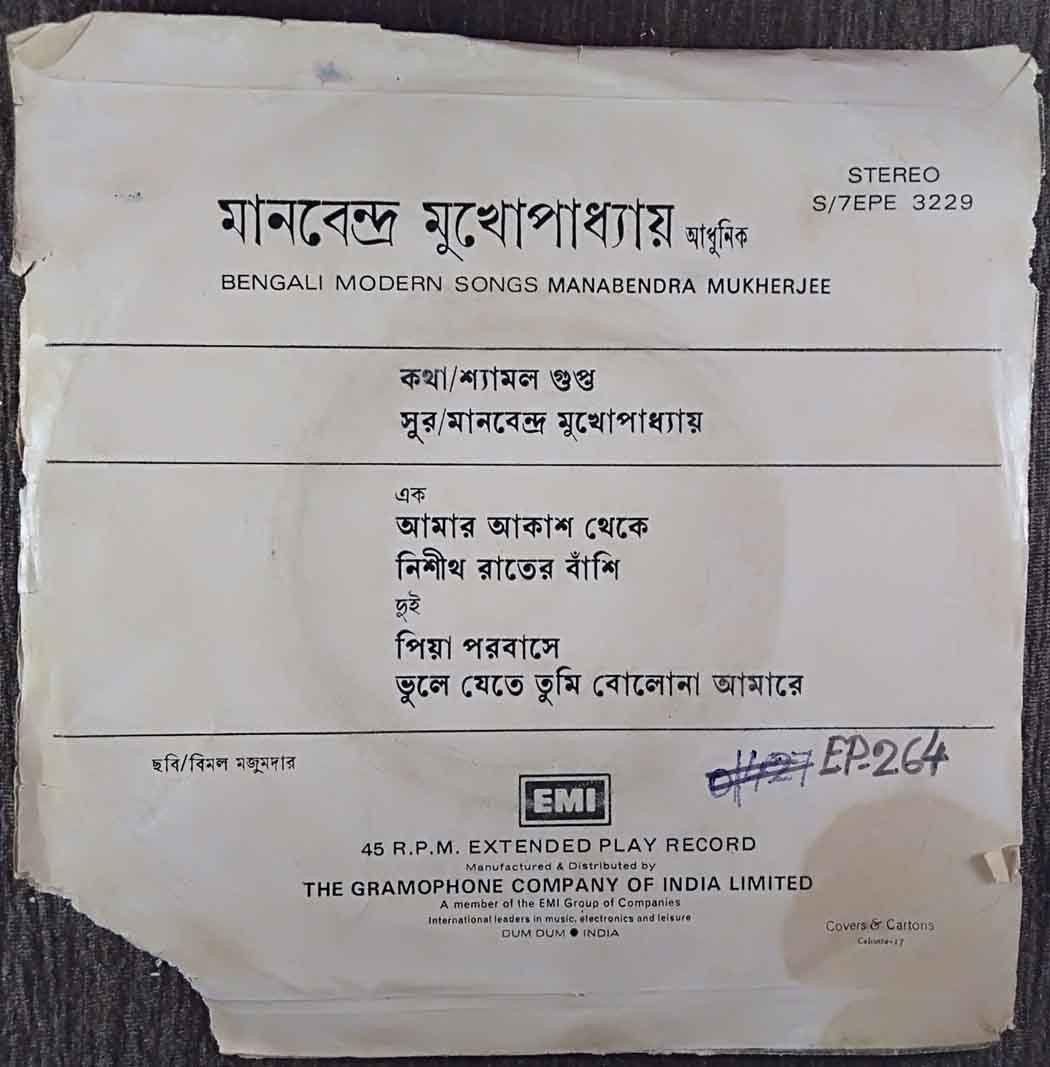 STEREO
S/7EPE 3229
মানবেন্দ্র মুখোপাধ্যায় আধুনিক
BENGALI MODERN SONGS MANABENDRA MUKHERJEE
কথা/শ্যামল গুপ্ত
সুর/মানবেন্দ্র মুখোপাধ্যায়
এক
আমার আকাশ থেকে
নিশীথ রাতের বাঁশি
দুই
পিয়া পরবাসে
ভুলে যেতে তুমি বোলোনা আমারে
ছবি/বিমল মজুমদার
EP-264
EMI
45 R.P.M. EXTENDED PLAY RECORD
Manufactured & Distributed by
THE GRAMOPHONE COMPANY OF INDIA LIMITED
A member of the EMI Group of Companies
International leaders in music, electronics and leisure
DUM DUM ● INDIA
Covers & Cartons
Calcutta-17